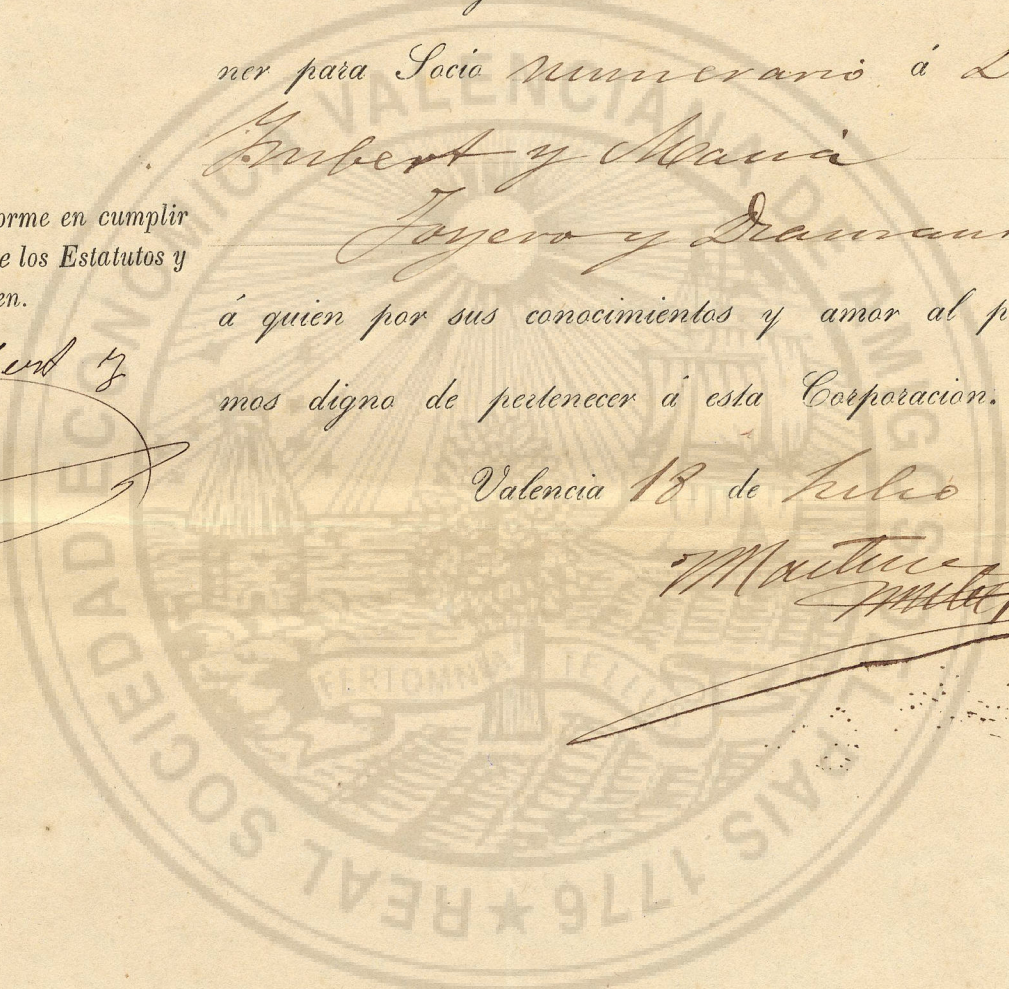 ner para Socio numerario á D
Imbert y María
Joyero y Diaman
á quien por sus conocimientos y amor al p
mos digno de pertenecer á esta Corporacion.
Valencia 18 de Julio
Martinez
orme en cumplir
e los Estatutos y
en.
ert y
REAL SOCIEDAD ECONOMICA VALENCIANA DE AMIGOS DEL PAIS 1776
FERTOMNIA TELLUS